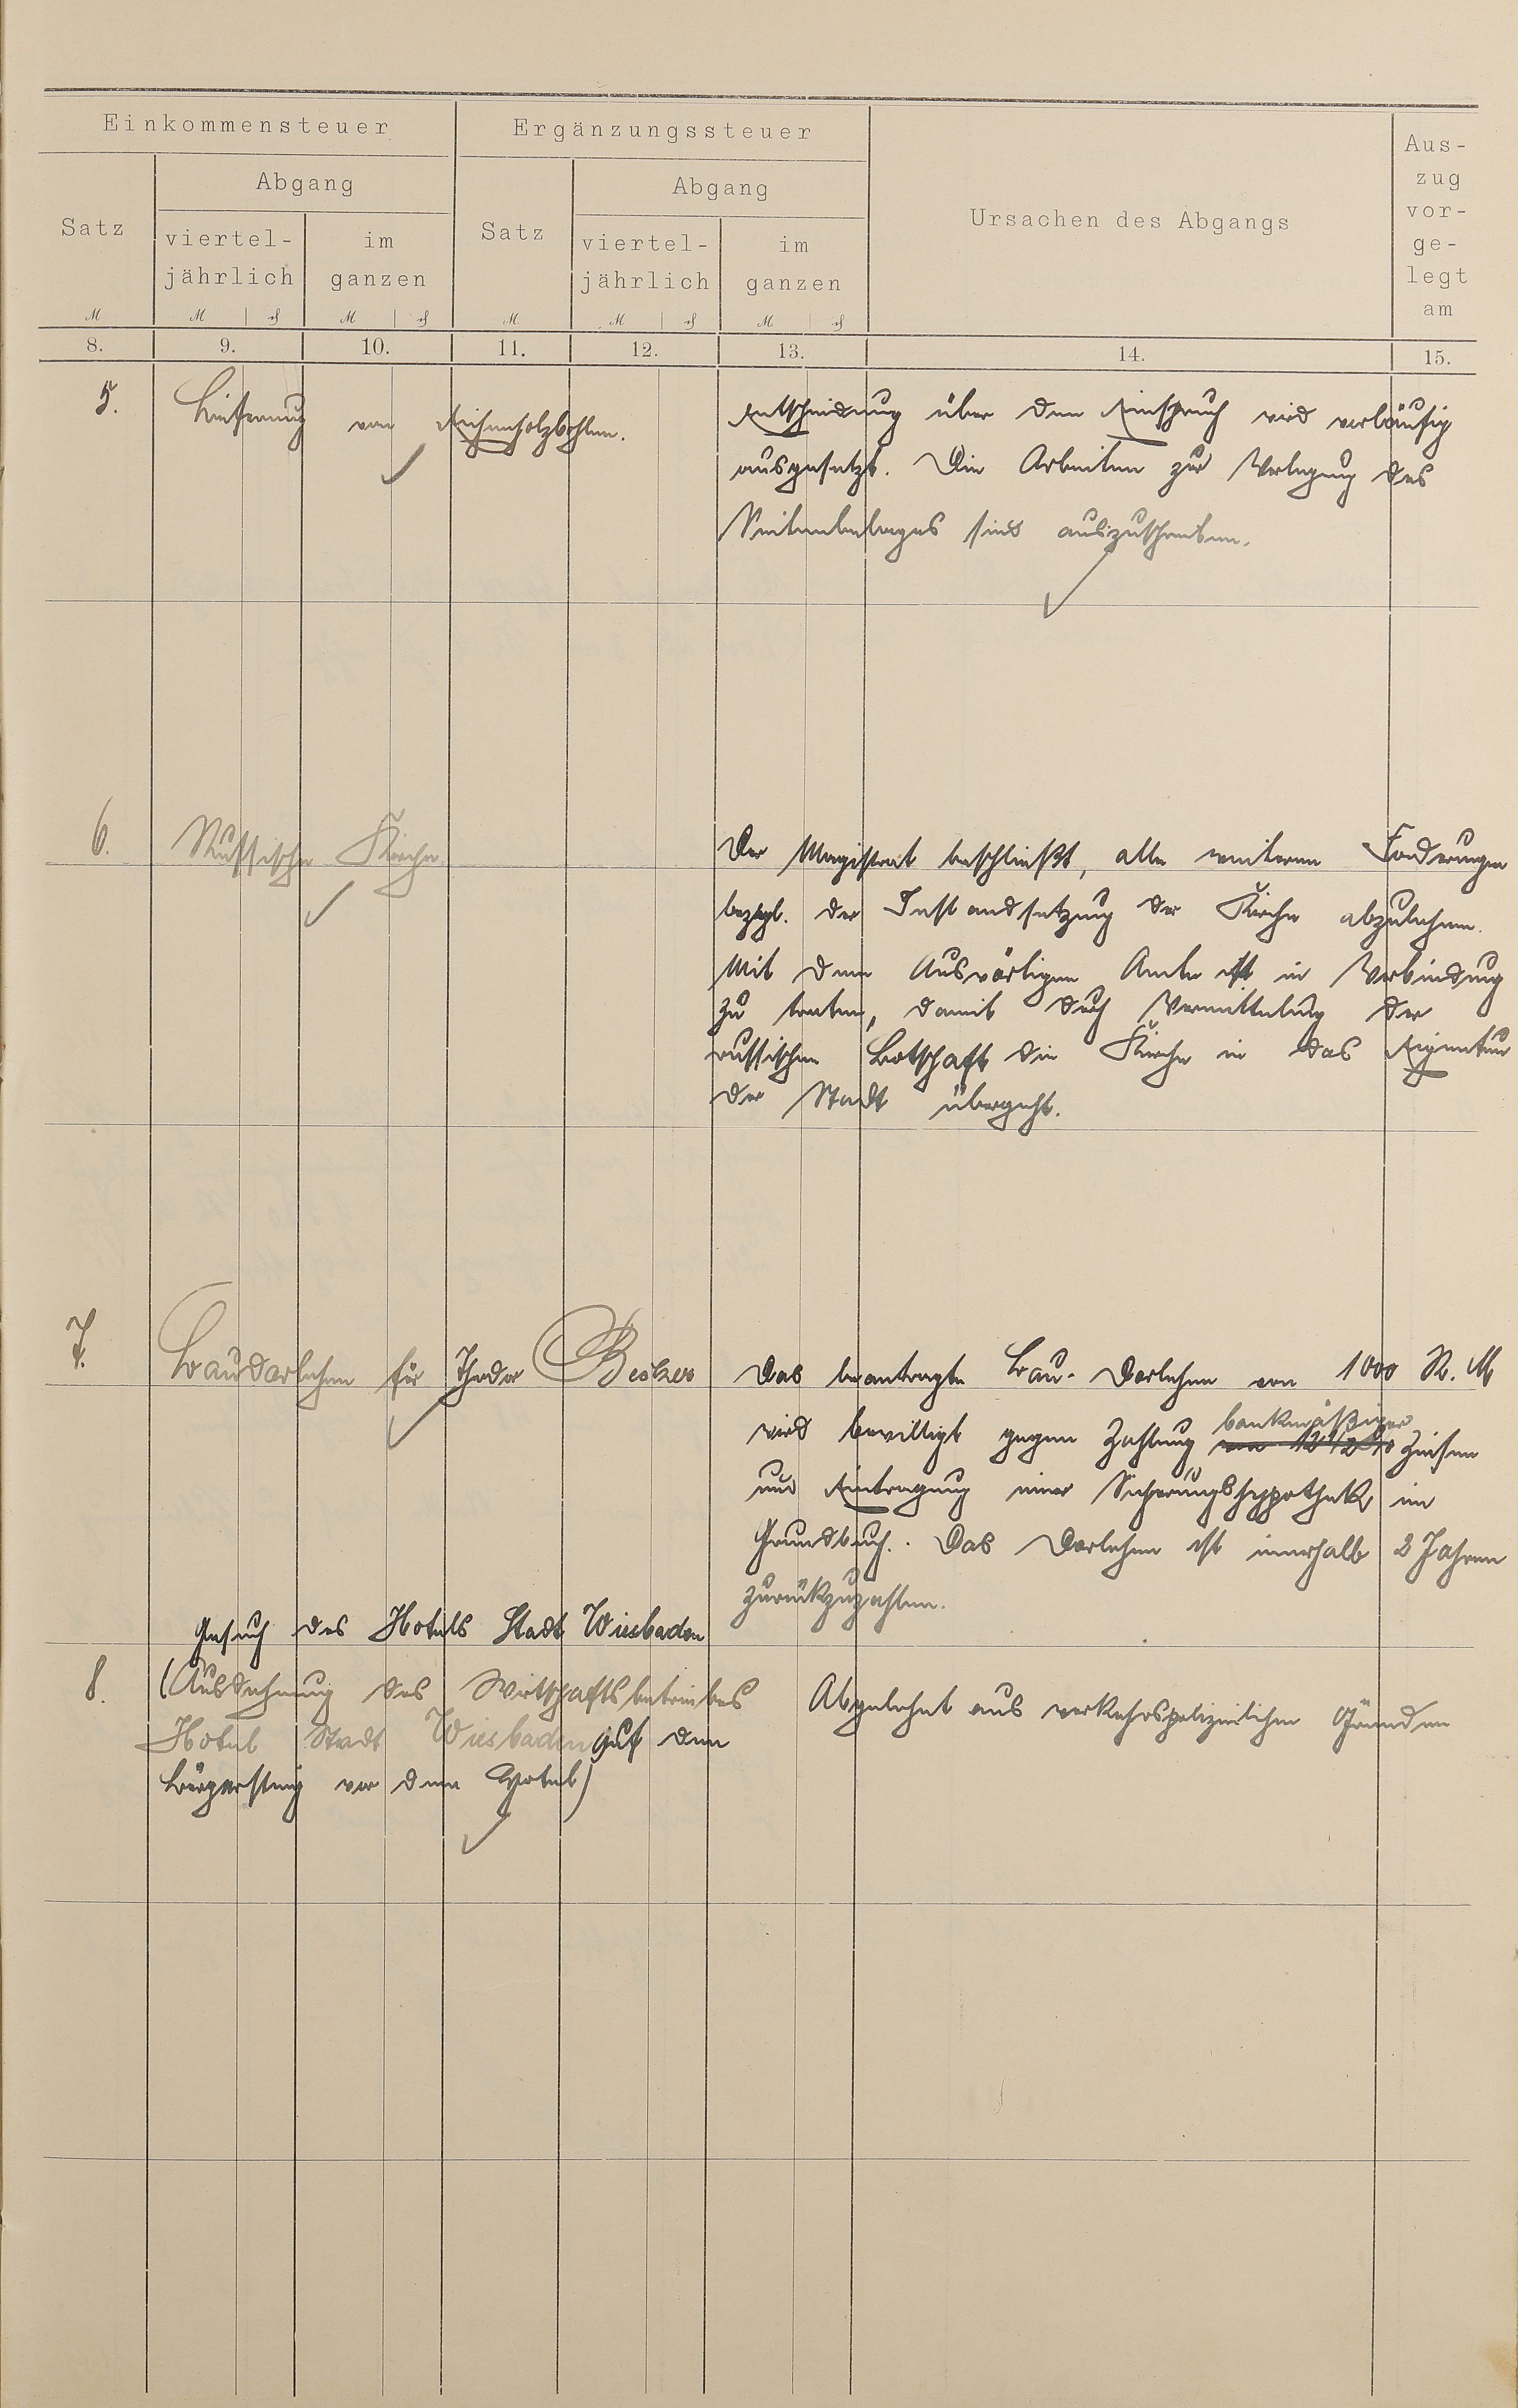 Einkommensteuer
Ergänzungssteuer
Ursachen des Abgangs
Aus-
zug
vor-
ge-
legt
am
Satz
Abgang
viertel-
jährlich
im
ganzen
Satz
Abgang
viertel-
jährlich
im
ganzen
M
M
₰
M
₰
M
M
₰
M
₰
8.
9.
10.
11.
12.
13.
14.
15.
5.
Lieferung von Eichenholzbohlen.
Entscheidung über den Einspruch wird vorläufig
ausgesetzt. Die Arbeiten zur Verlegung des
Seitenbelages sind auszuschreiben.
6.
Russische Kirche
Der Magistrat beschließt, alle weiteren Forderungen
bezgl. der Instandsetzung der Kirche abzulehnen.
Mit dem Auswärtigen Amte ist in Verbindung
zu treten, damit durch Vermittelung der
russischen Botschaft die Kirche in das Eigentum
der Stadt übergeht.
7.
Baudarlehen für Theodor Besber
Das beantragte Bau-Darlehen von 1000 R.M
wird bewilligt gegen Zahlung bankmäßiger
von 12 1/2 % Zinsen
und Eintragung einer Sicherungshypothek im
Grundbuch. Das Darlehen ist innerhalb 2 Jahren
zurückzuzahlen.
Gesuch des Hotels Stadt Wiesbaden
8.
(Ausdehnung des Wirtschaftsbetriebes
Hotel Stadt Wiesbaden auf dem
Bürgersteig vor dem Hotel)
Abgelehnt aus verkehrspolizeilichen Gründen